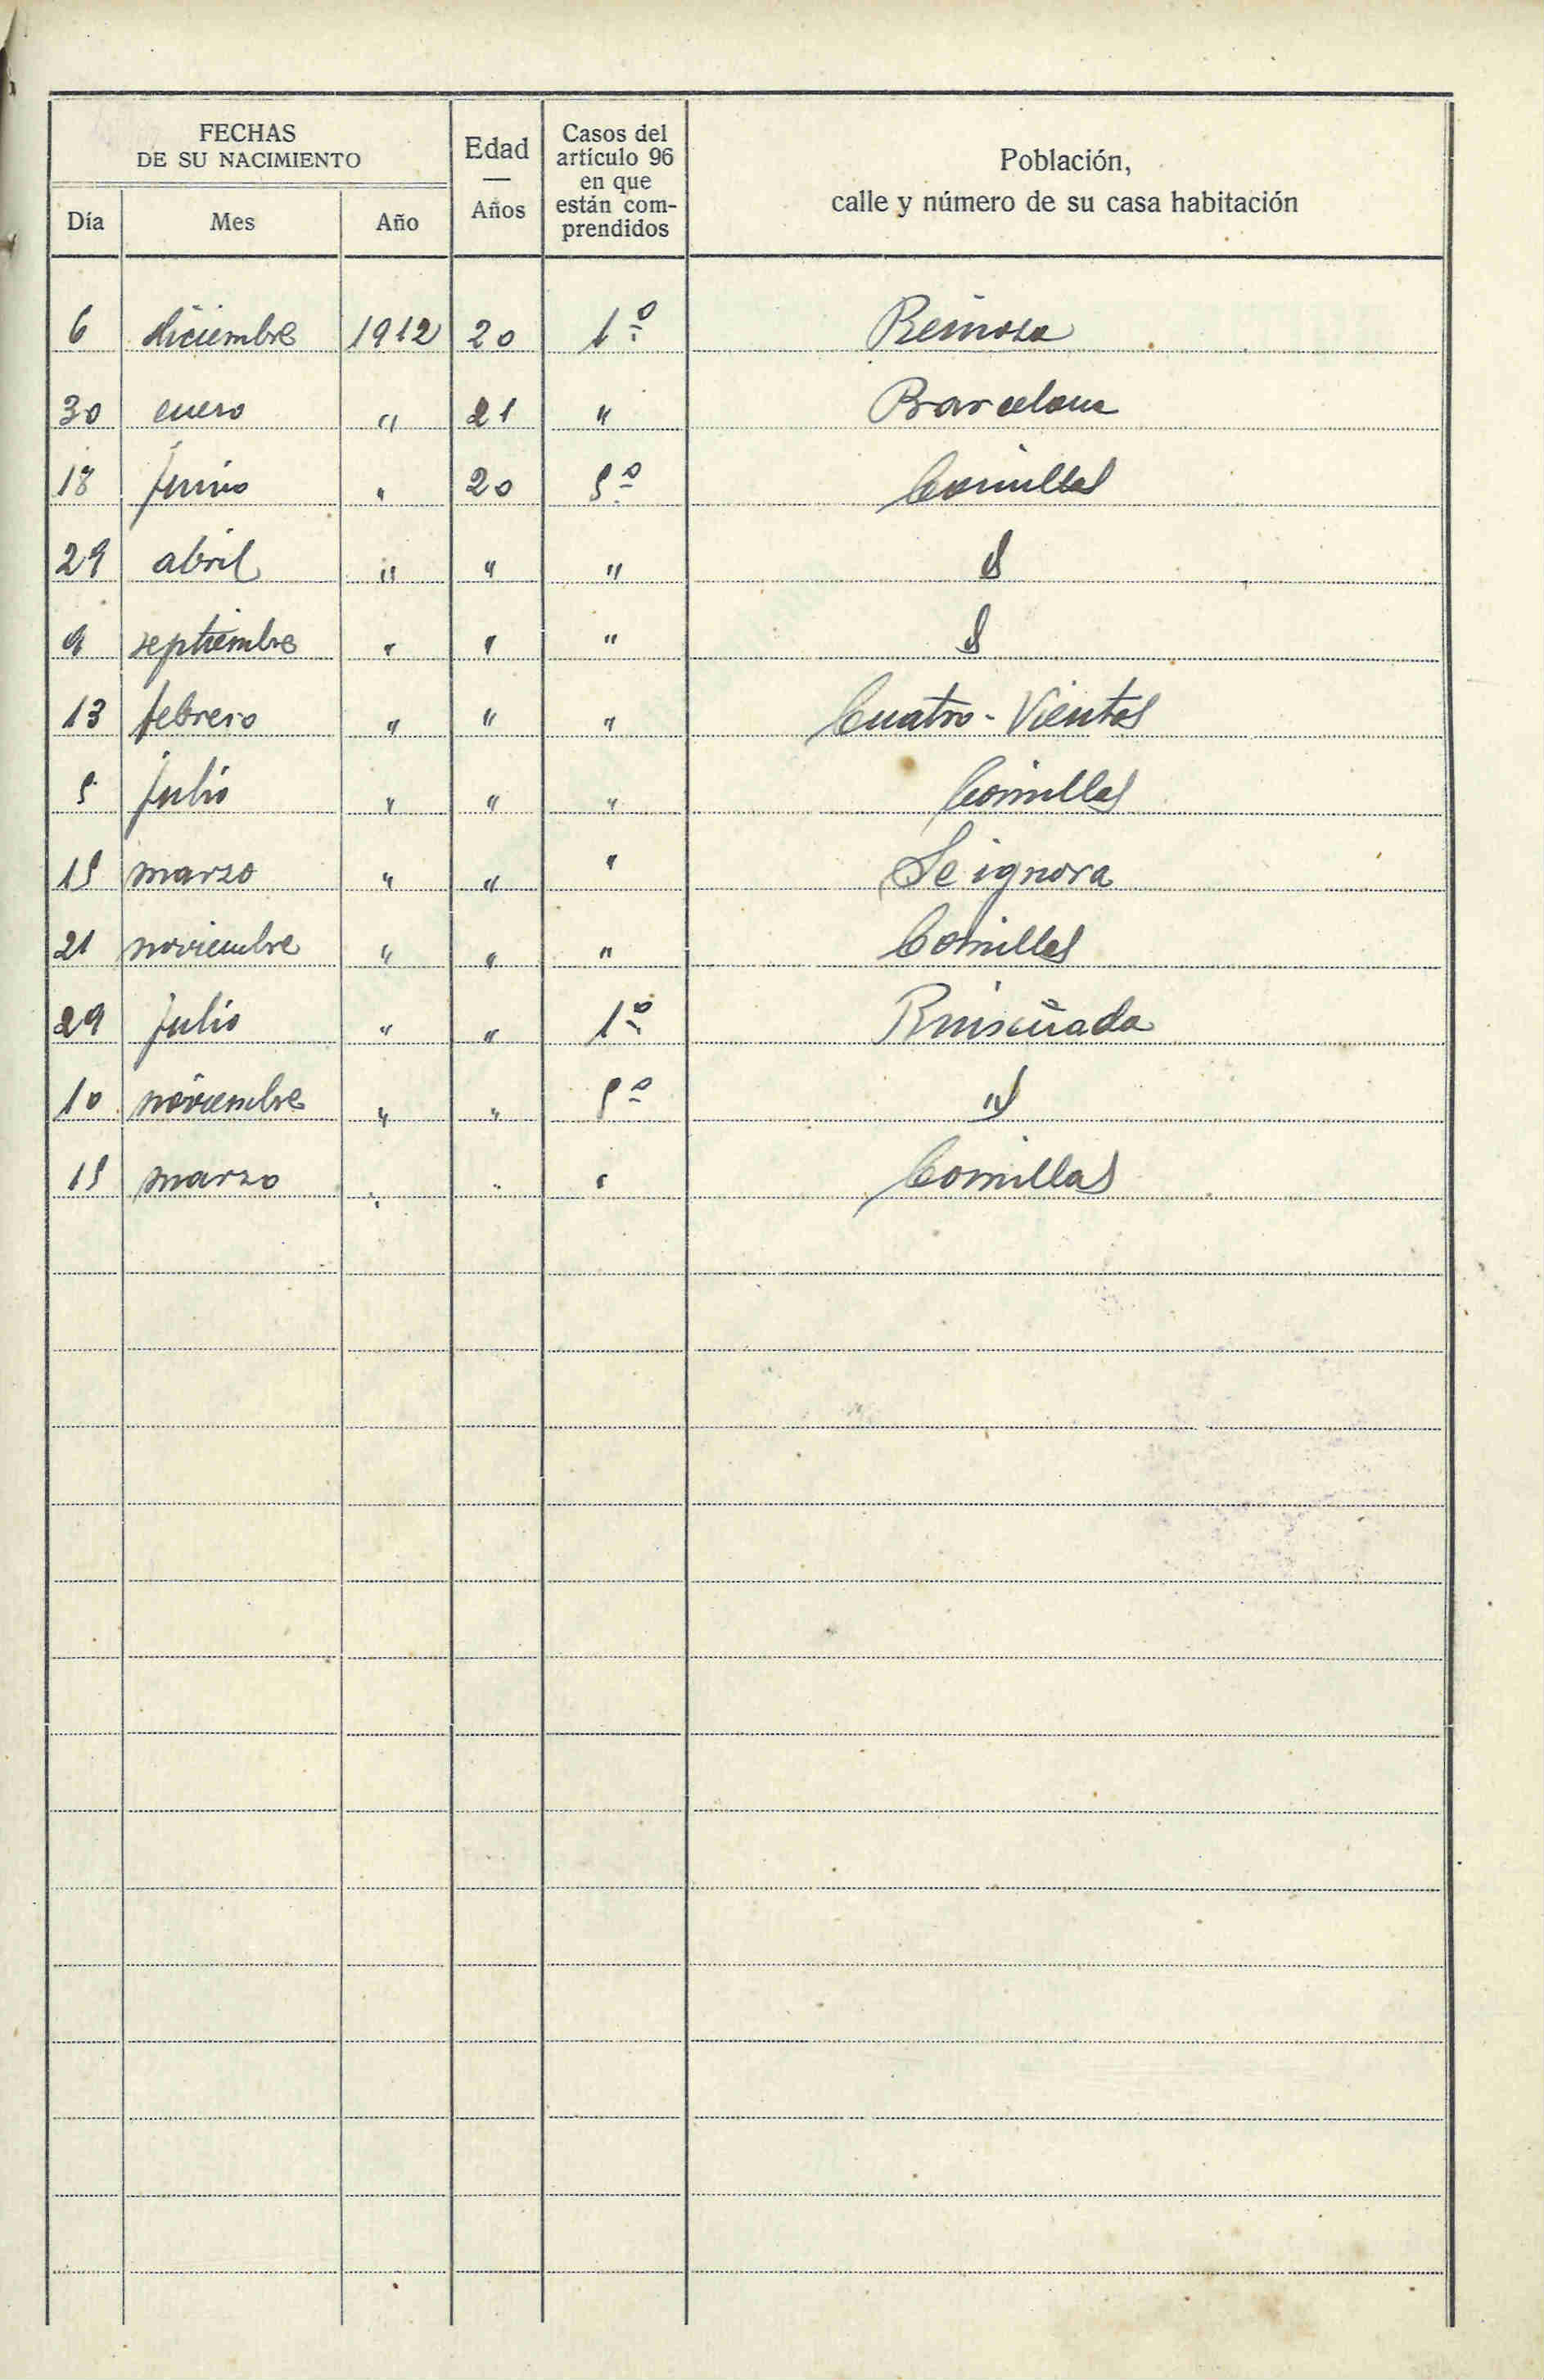 FECHAS
DE SU NACIMIENTO
Día Mes Año
Edad
—
Años
Casos del
artículo 96
en que
están com-
prendidos
Población,
calle y número de su casa habitación
6 diciembre 1912 20 1º Reinosa
30 enero " 21 " Barcelona
18 Junio " 20 5º Comillas
29 abril " " "
9 septiembre " " "
13 febrero " " " Cuatro-Vientos
5 Julio " " " Comillas
15 marzo " " " Se ignora
21 noviembre " " " Comillas
29 Julio " " 1º Ruiseñada
10 noviembre " " 5º "
15 marzo " " " Comillas